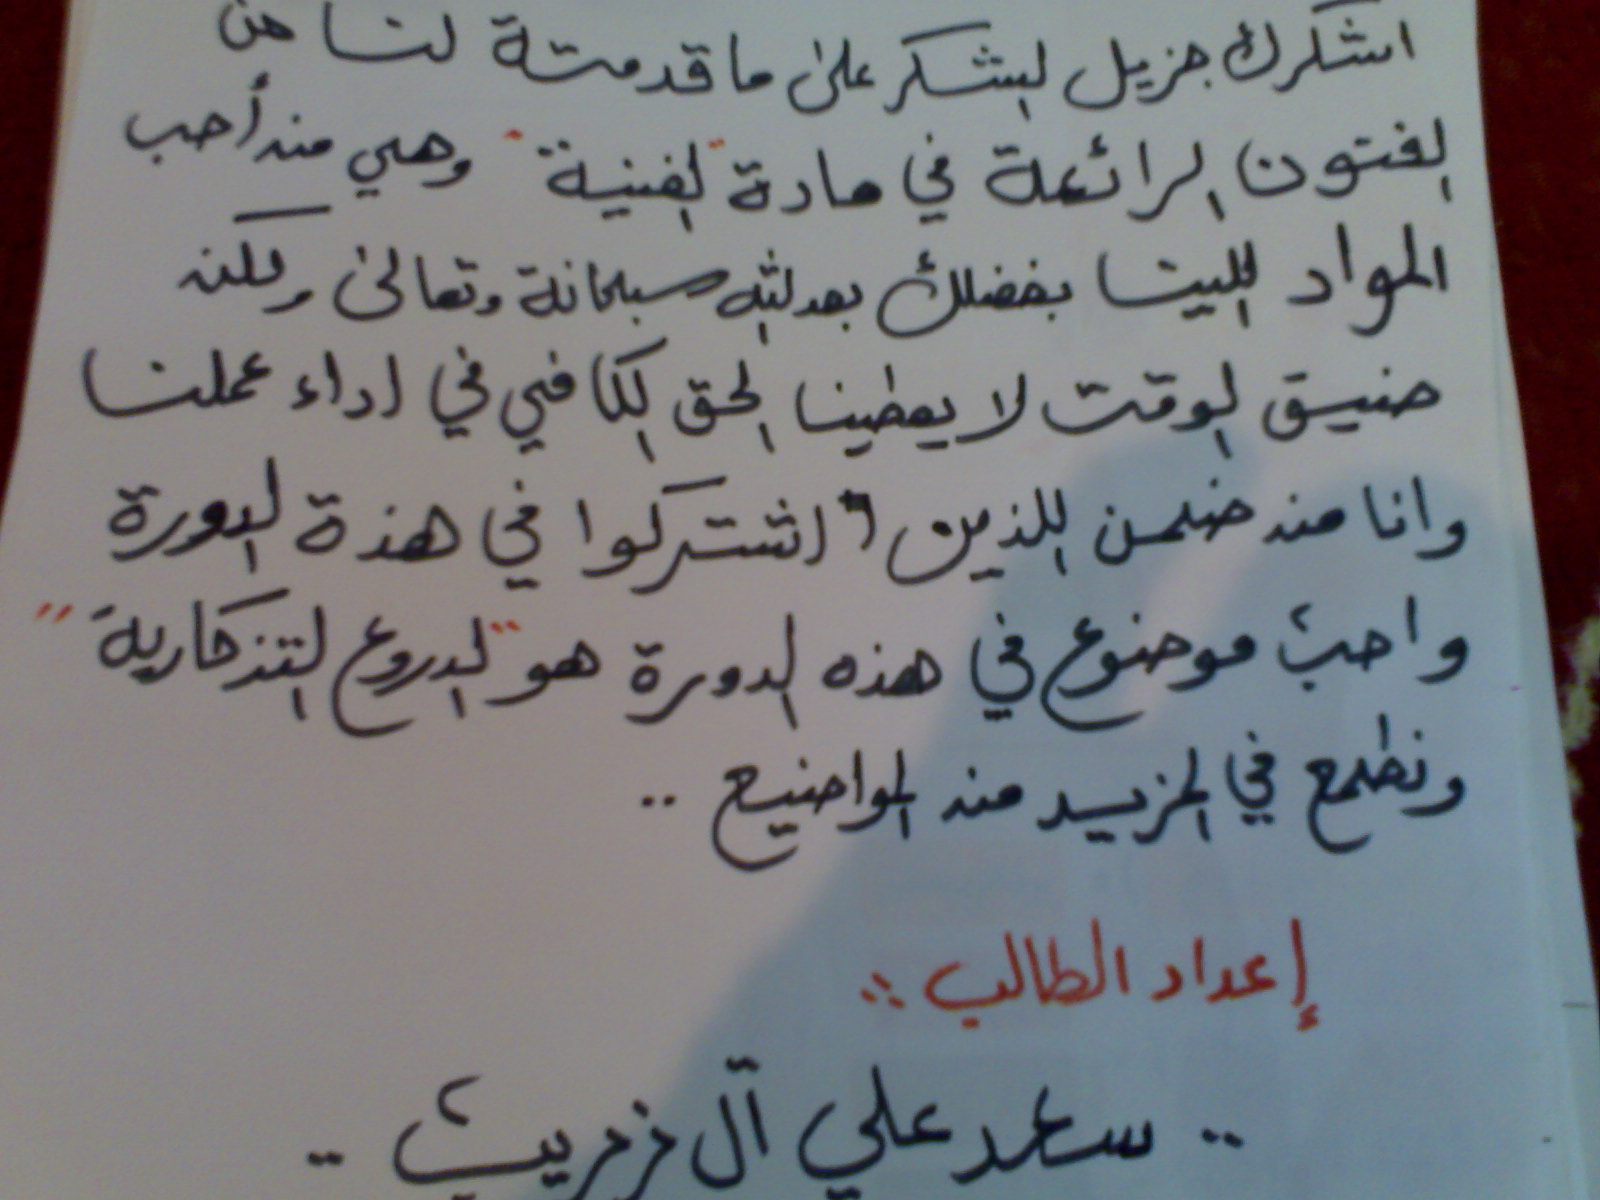 اشكرك جزيل الشكر على ما قدمتة لنا من
الفنون الرائعة في مادة "الفنية" وهي من أحب
المواد الينا بفضلك بعد الله سبحانة وتعالى ولكن
ضيق الوقت لا يعطينا الحق الكافي في اداء عملنا
وانا من ضمن الذين اشتركوا في هذة الدورة
واحب موضوع في هذه الدورة هو "الدروع التذكارية"
ونطمع في المزيد من المواضيع ..
إعداد الطالب :
.. سعد علي آل ..